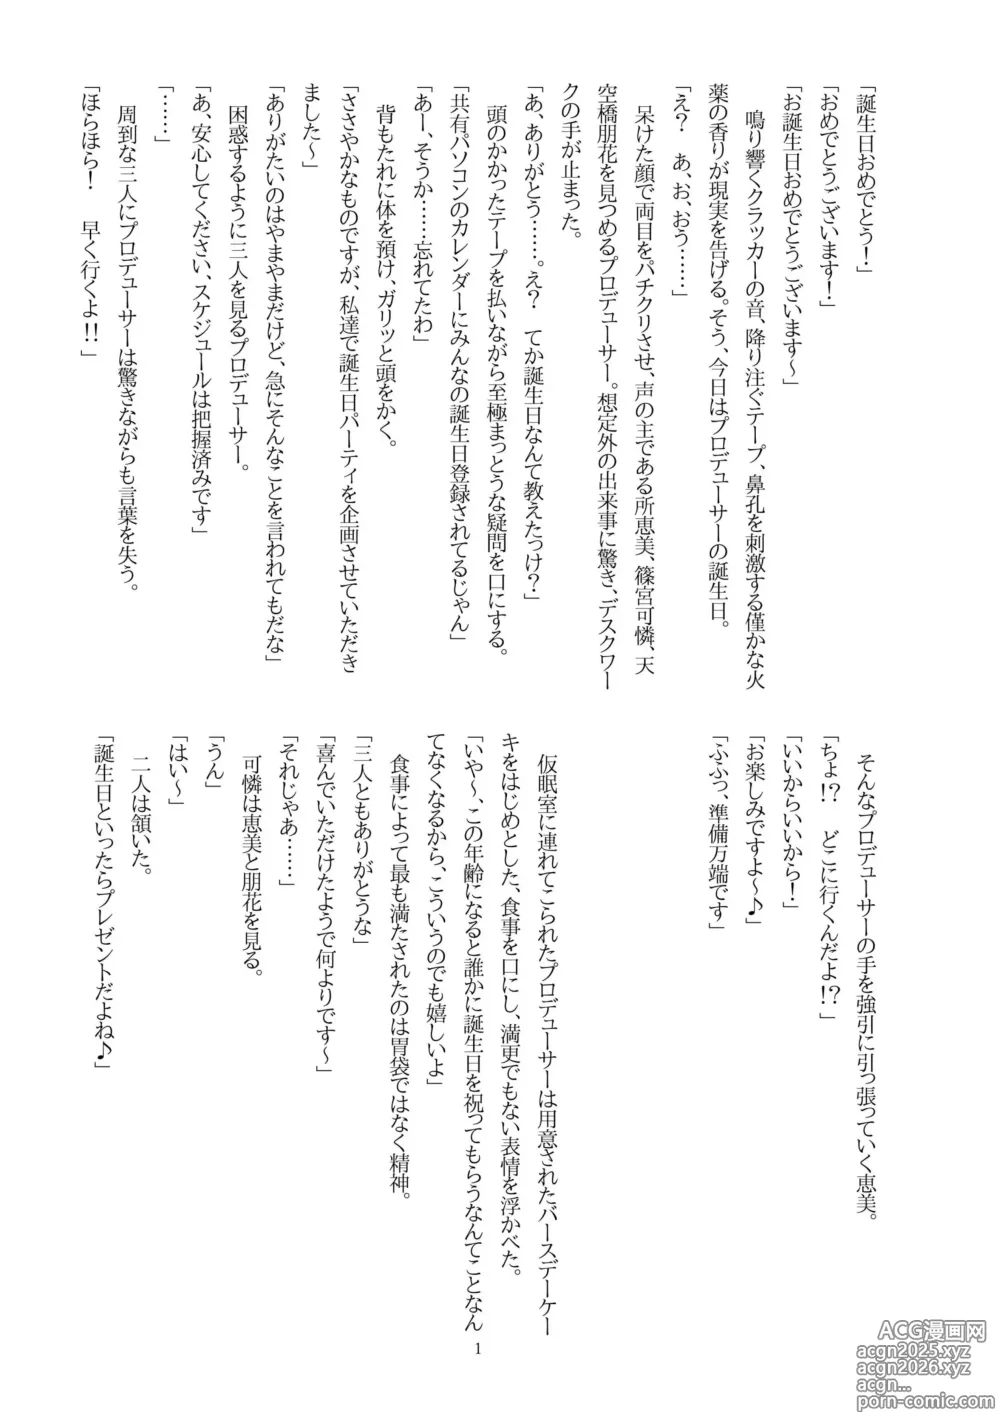 「誕生日おめでとう！」
「おめでとうございます！」
「お誕生日おめでとうございます～」
　鳴り響くクラッカーの音、降り注ぐテープ、鼻孔を刺激する僅かな火
薬の香りが現実を告げる。そう、今日はプロデューサーの誕生日。
「え？　あ、お、おう……」
　呆けた顔で両目をパチクリさせ、声の主である所恵美、篠宮可憐、天
空橋朋花を見つめるプロデューサー。想定外の出来事に驚き、デスクワー
クの手が止まった。
「あ、ありがとう……。え？　てか誕生日なんて教えたっけ？」
　頭のかかったテープを払いながら至極まっとうな疑問を口にする。
「共有パソコンのカレンダーにみんなの誕生日登録されてるじゃん」
「あー、そうか……忘れてたわ」
　背もたれに体を預け、ガリッと頭をかく。
「ささやかなものですが、私達で誕生日パーティを企画させていただき
ました～」
「ありがたいのはやまやまだけど、急にそんなことを言われてもだな」
　困惑するように三人を見るプロデューサー。
「あ、安心してください、スケジュールは把握済みです」
「……」
　周到な三人にプロデューサーは驚きながらも言葉を失う。
「ほらほら！　早く行くよ！！」
　そんなプロデューサーの手を強引に引っ張っていく恵美。
「ちょ！？　どこに行くんだよ！？」
「いいからいいから！」
「お楽しみですよ～♪」
「ふふっ、準備万端です」
　仮眠室に連れてこられたプロデューサーは用意されたバースデーケー
キをはじめとした、食事を口にし、満更でもない表情を浮かべた。
「いや～、この年齢になると誰かに誕生日を祝ってもらうなんてことなん
てなくなるから、こういうのでも嬉しいよ」
　食事によって最も満たされたのは胃袋ではなく精神。
「三人ともありがとうな」
「喜んでいただけたようで何よりです～」
「それじゃあ……」
　可憐は恵美と朋花を見る。
「うん」
「はい～」
　二人は頷いた。
「誕生日といったらプレゼントだよね♪」
1
ACG漫画网
acgn2025.xyz
acgn2026.xyz
acgn...
porn-comic.com